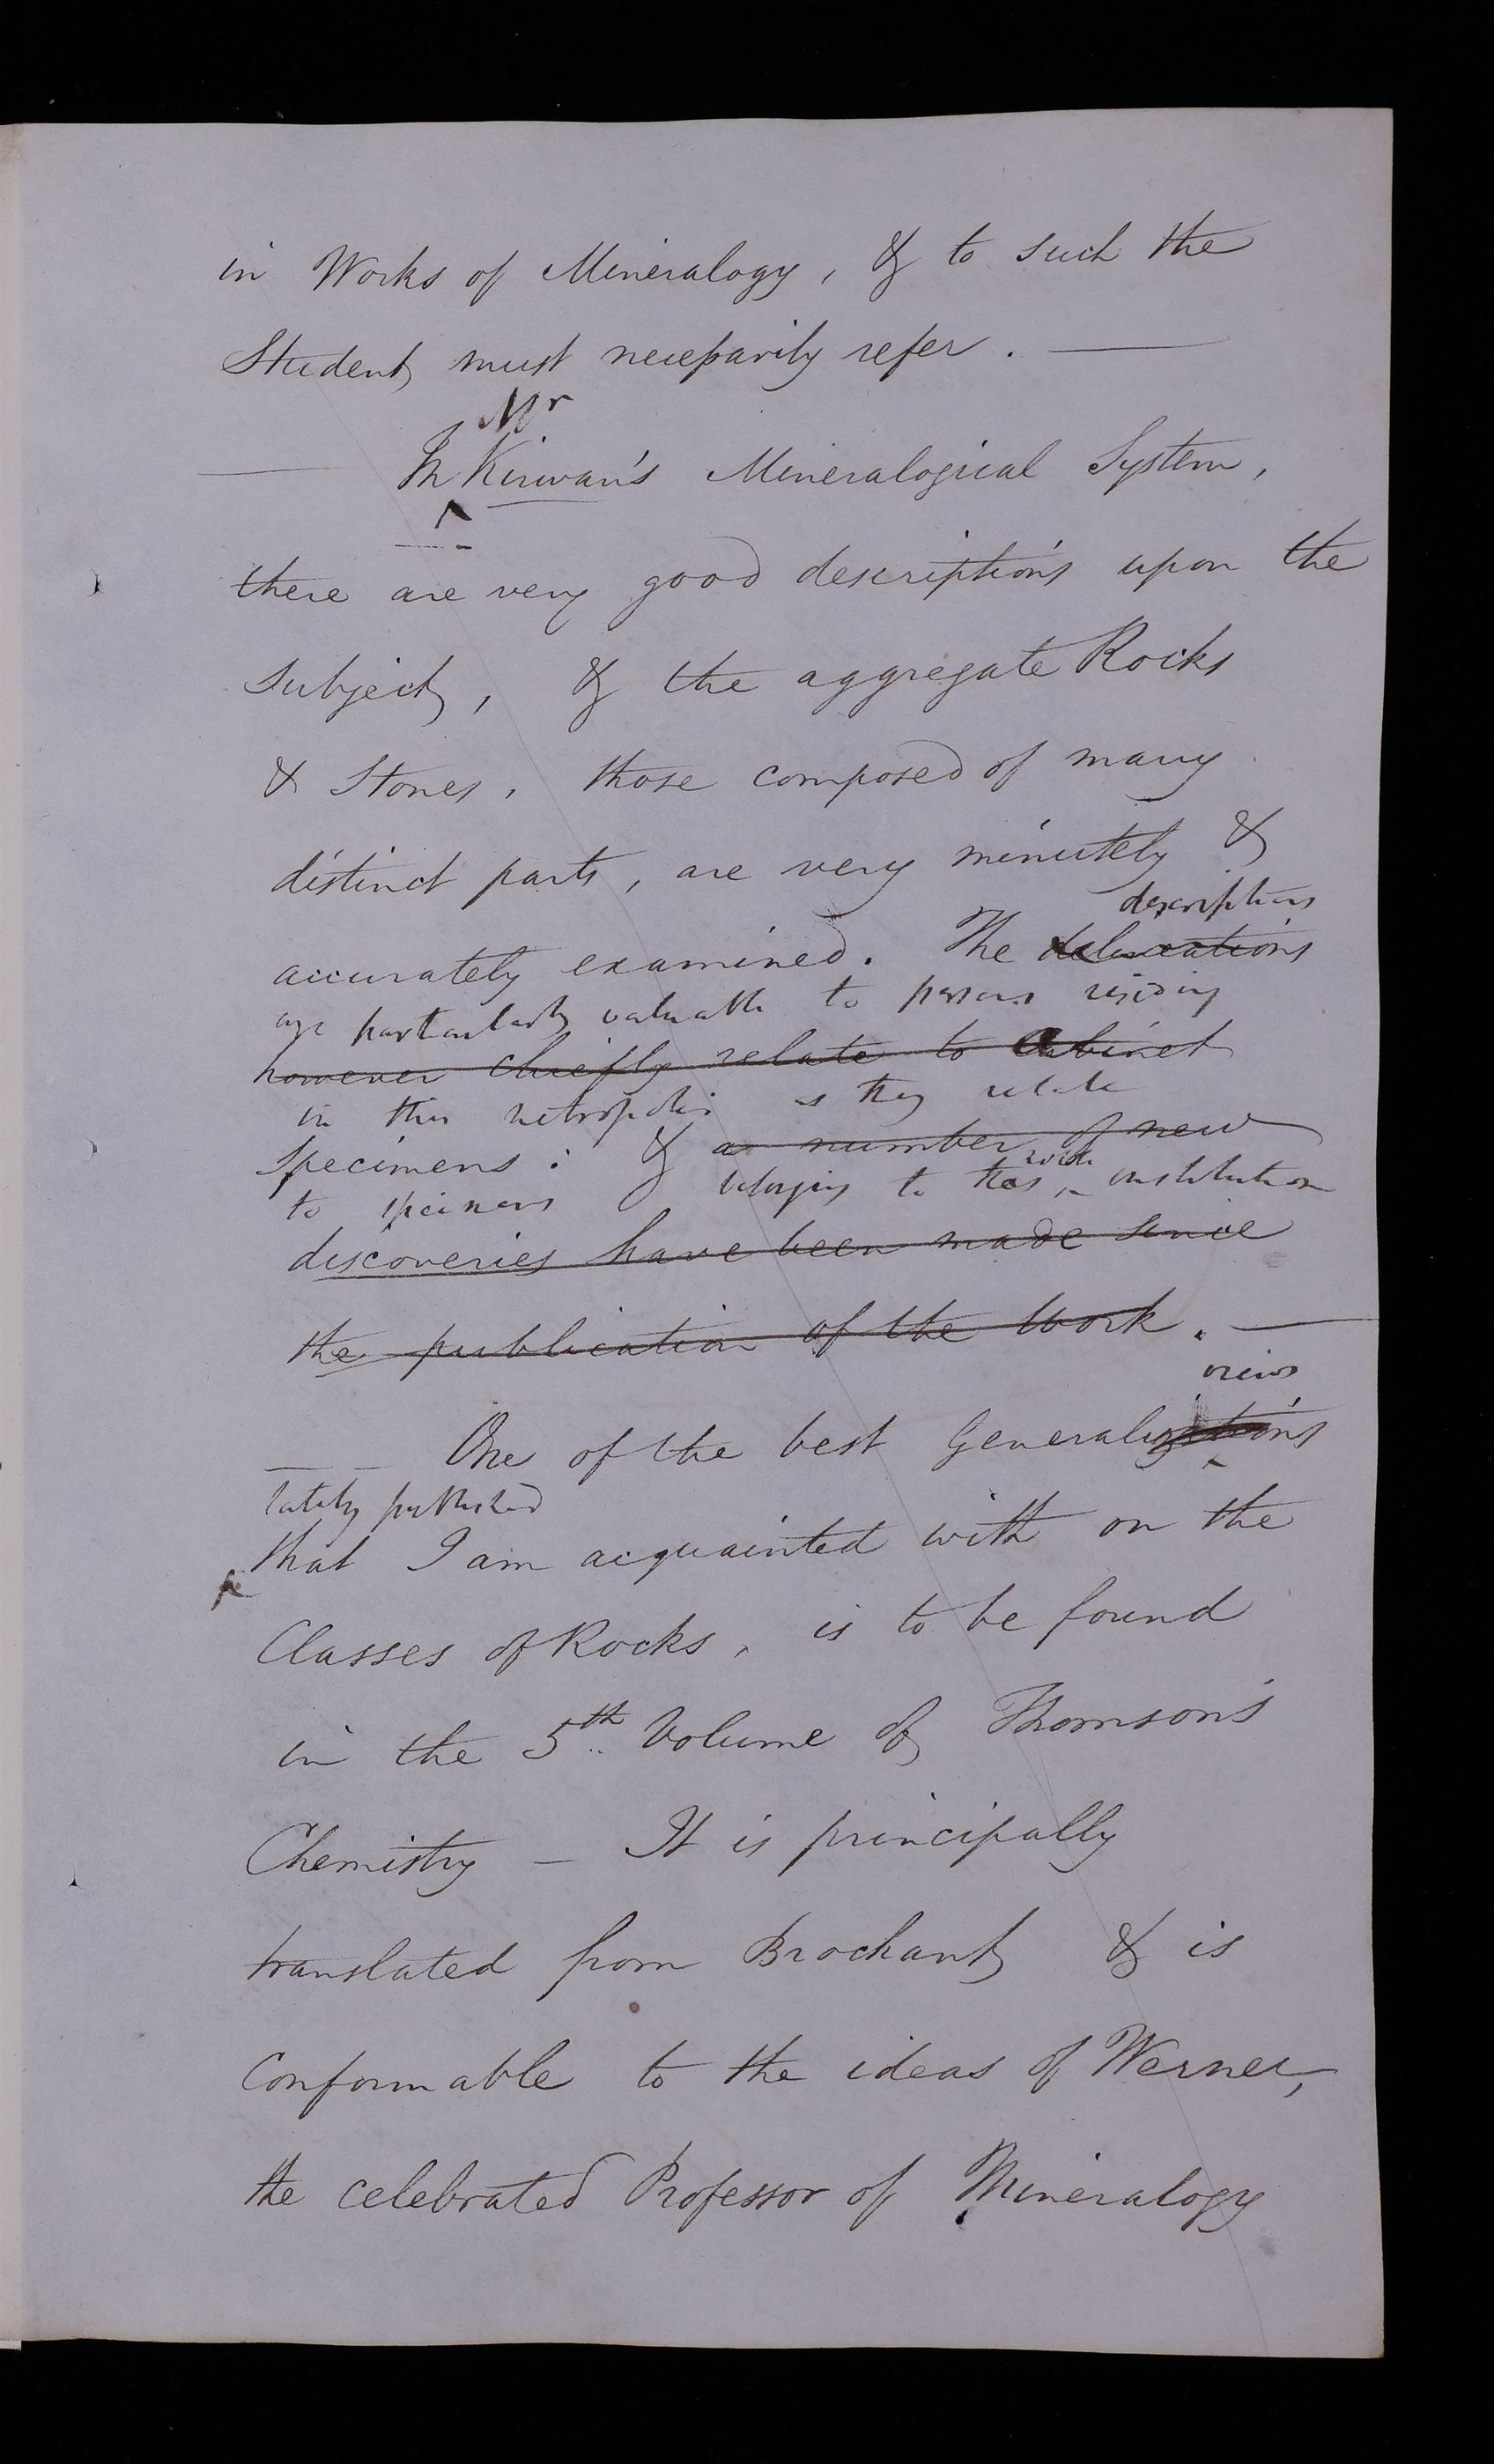 in Works of Mineralogy, & to such the
Student must necessarily refer. —
Mr
— In Kirwan's Mineralogical System,
there are very good descriptions upon the
subject, & the aggregate Rocks
& Stones, those composed of many
distinct parts, are very minutely &
descriptions
accurately examined. The delineations
are particularly valuable to persons residing
however chiefly relate to Cabinet
in this metropolis as they relate
Specimens: & a number of new
to specimens belonging to this institution
discoveries have been made since
the publication of the Work. —
views
One of the best Generalizations
lately published
that I am acquainted with on the
Classes of Rocks, is to be found
in the 5th Volume of Thomson's
Chemistry — It is principally
translated from Brochant & is
conformable to the ideas of Werner,
the celebrated Professor of Mineralogy